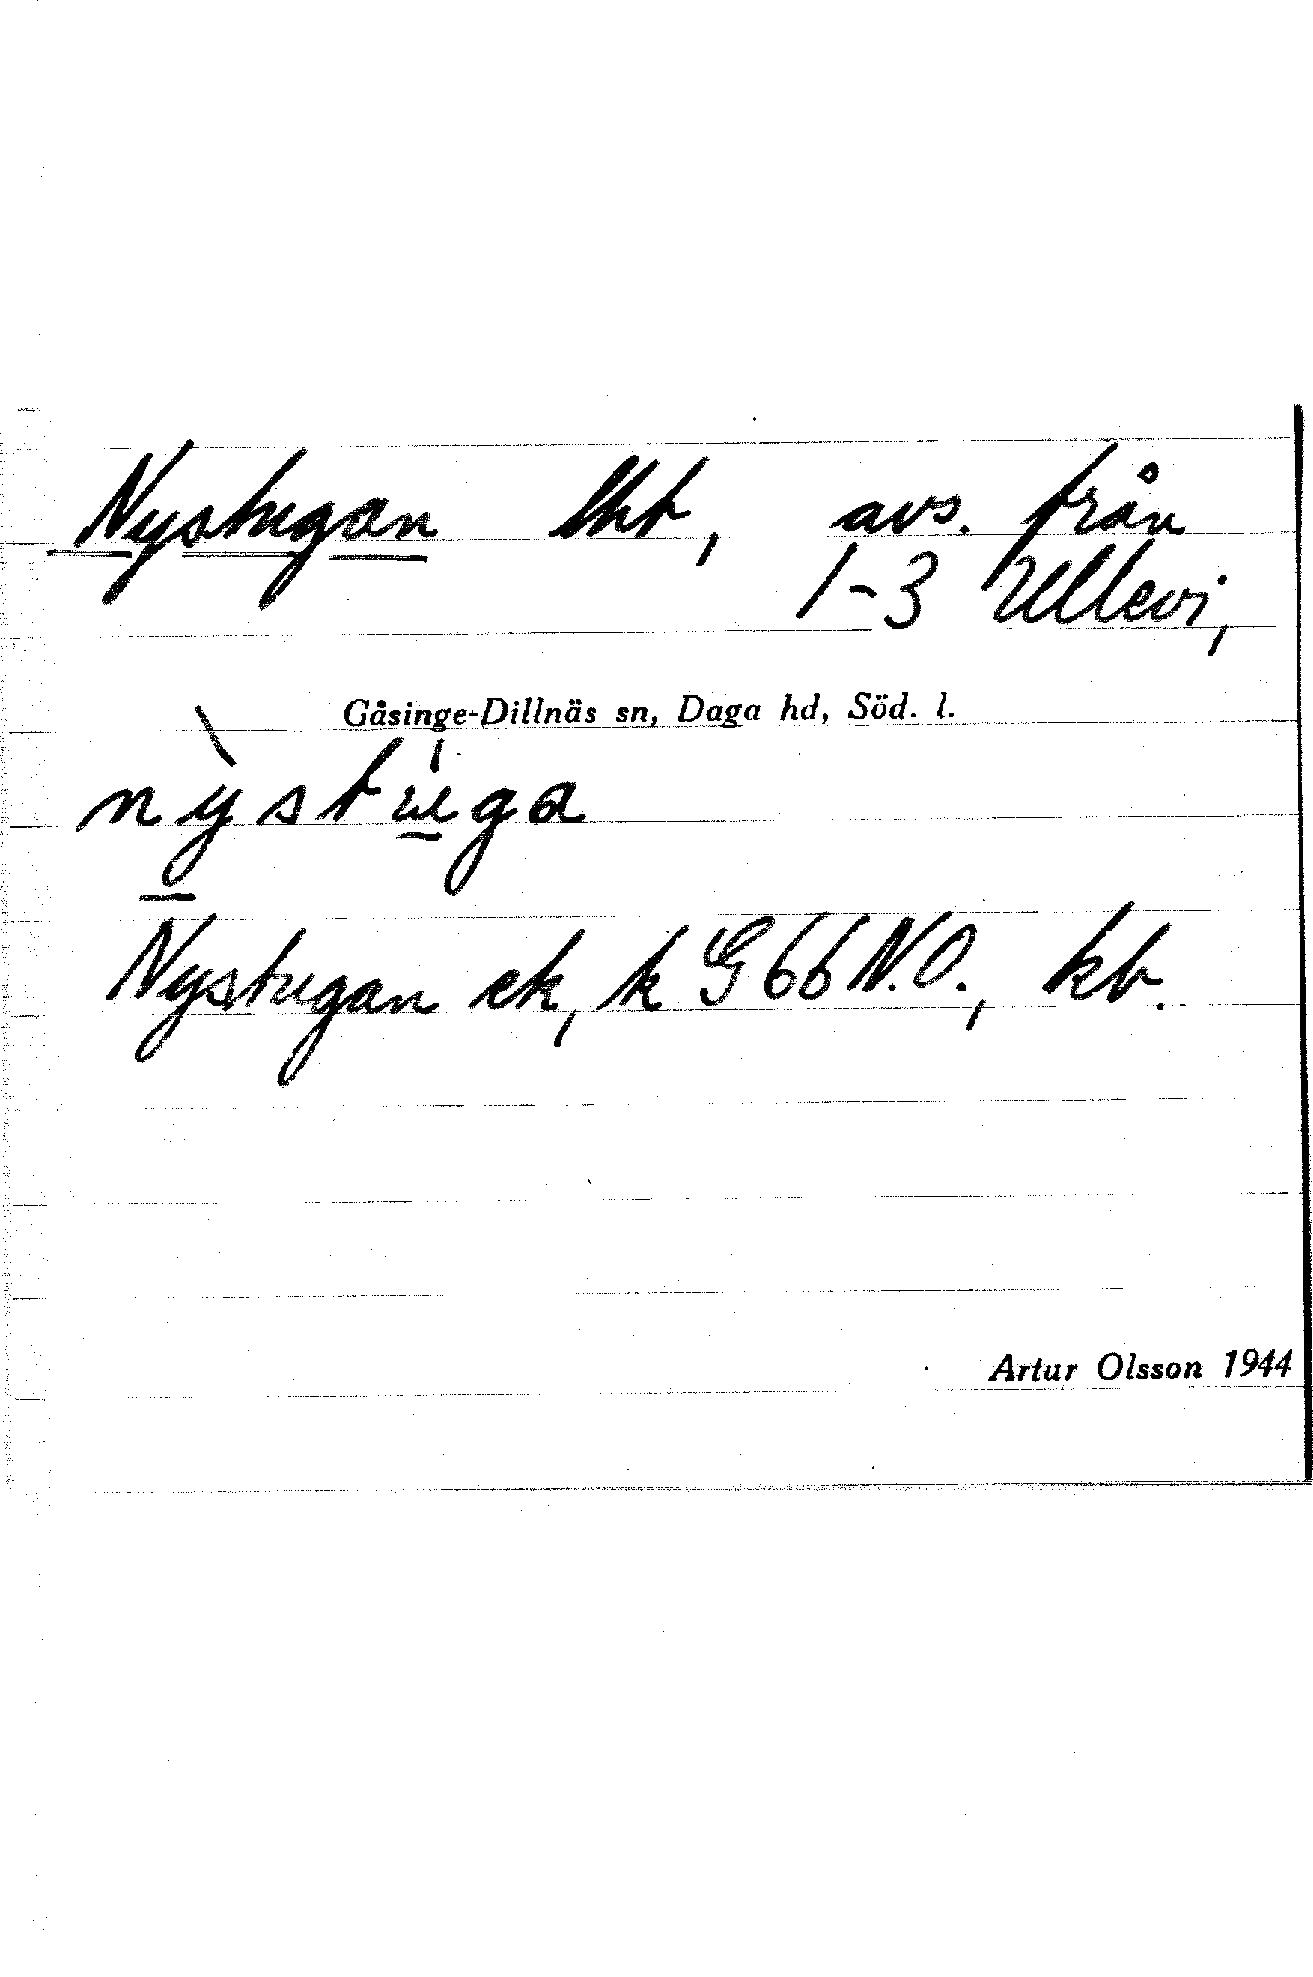 Nystugan lht, avs. från
1-3 Ullevi,
Gåsinge-Dillnäs sn, Daga hd, Söd. l.
nỳstúga
Nystugan ek, k G66 N.O., kb.
Artur Olsson 1944